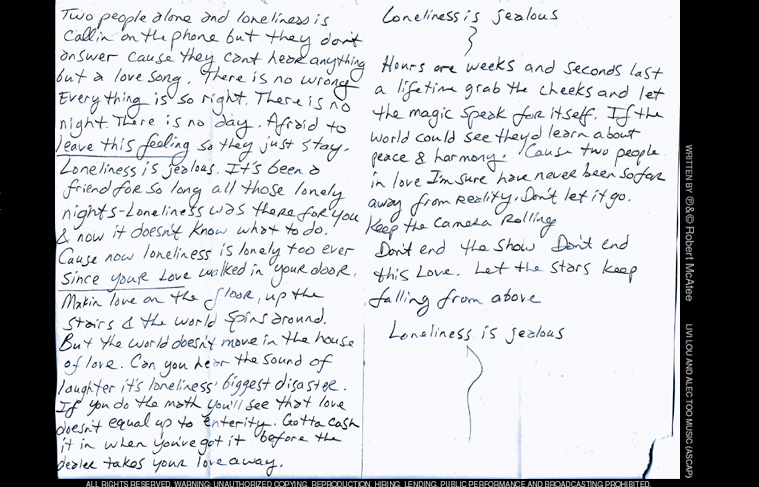 Two people alone and loneliness is
callin on the phone but they dont
answer cause they cant hear anything
but a love song. There is no wrong
Everything is so right. There is no
night. There is no day. Afraid to
leave this feeling so they just stay.
Loneliness is jealous. It's been a
friend for so long all those lonely
nights-Loneliness was there for you
& now it doesn't know what to do.
Cause now loneliness is lonely too ever
since your Love walked in your door.
Makin love on the floor, up the
stairs & the world spins around.
But the world doesn't move in the house
of love. Can you hear the sound of
laughter it's loneliness' biggest disaster.
If you do the math you'll see that love
doesn't equal up to enterity. Gotta cash
it in when you've got it before the
dealer takes your love away.
Loneliness is jealous
Hours are weeks and seconds last
a lifetime grab the cheeks and let
the magic speak for itself. If the
world could see they'd learn about
peace & harmony. 'Cause two people
in love I'm sure have never been so far
away from reality. Don't let it go.
Keep the camera rolling
Don't end the show Don't end
this Love. Let the stars keep
falling from above
Loneliness is jealous
WRITTEN BY ℗&© Robert McAtee
LIVI LOU AND ALEC TOO MUSIC (ASCAP)
ALL RIGHTS RESERVED. WARNING: UNAUTHORIZED COPYING, REPRODUCTION, HIRING, LENDING, PUBLIC PERFORMANCE AND BROADCASTING PROHIBITED.